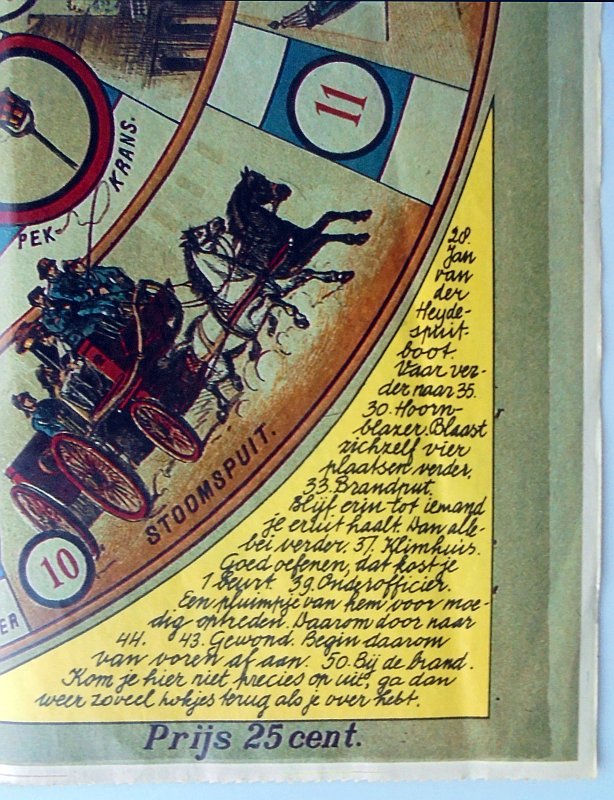 11
KRANS.
PEK-
STOOMSPUIT.
10
ER
28.
Jan
van
der
Heyde-
spuit-
boot.
Vaar ver-
der naar 35.
30. Hoorn-
blazer. Blaast
zichzelf vier
plaatsen verder.
33. Brandput.
Blijf erin tot iemand
je eruit haalt. Dan alle-
bei verder. 37. Klimhuis.
Goed oefenen, dat kost je
1 beurt. 39. Onderofficier.
Een pluimpje van hem voor moe-
dig optreden. Daarom door naar
44. 43. Gewond. Begin daarom
van voren af aan. 50. Bij de brand.
Kom je hier niet precies op uit, ga dan
weer zoveel hokjes terug als je over hebt.
Prijs 25 cent.